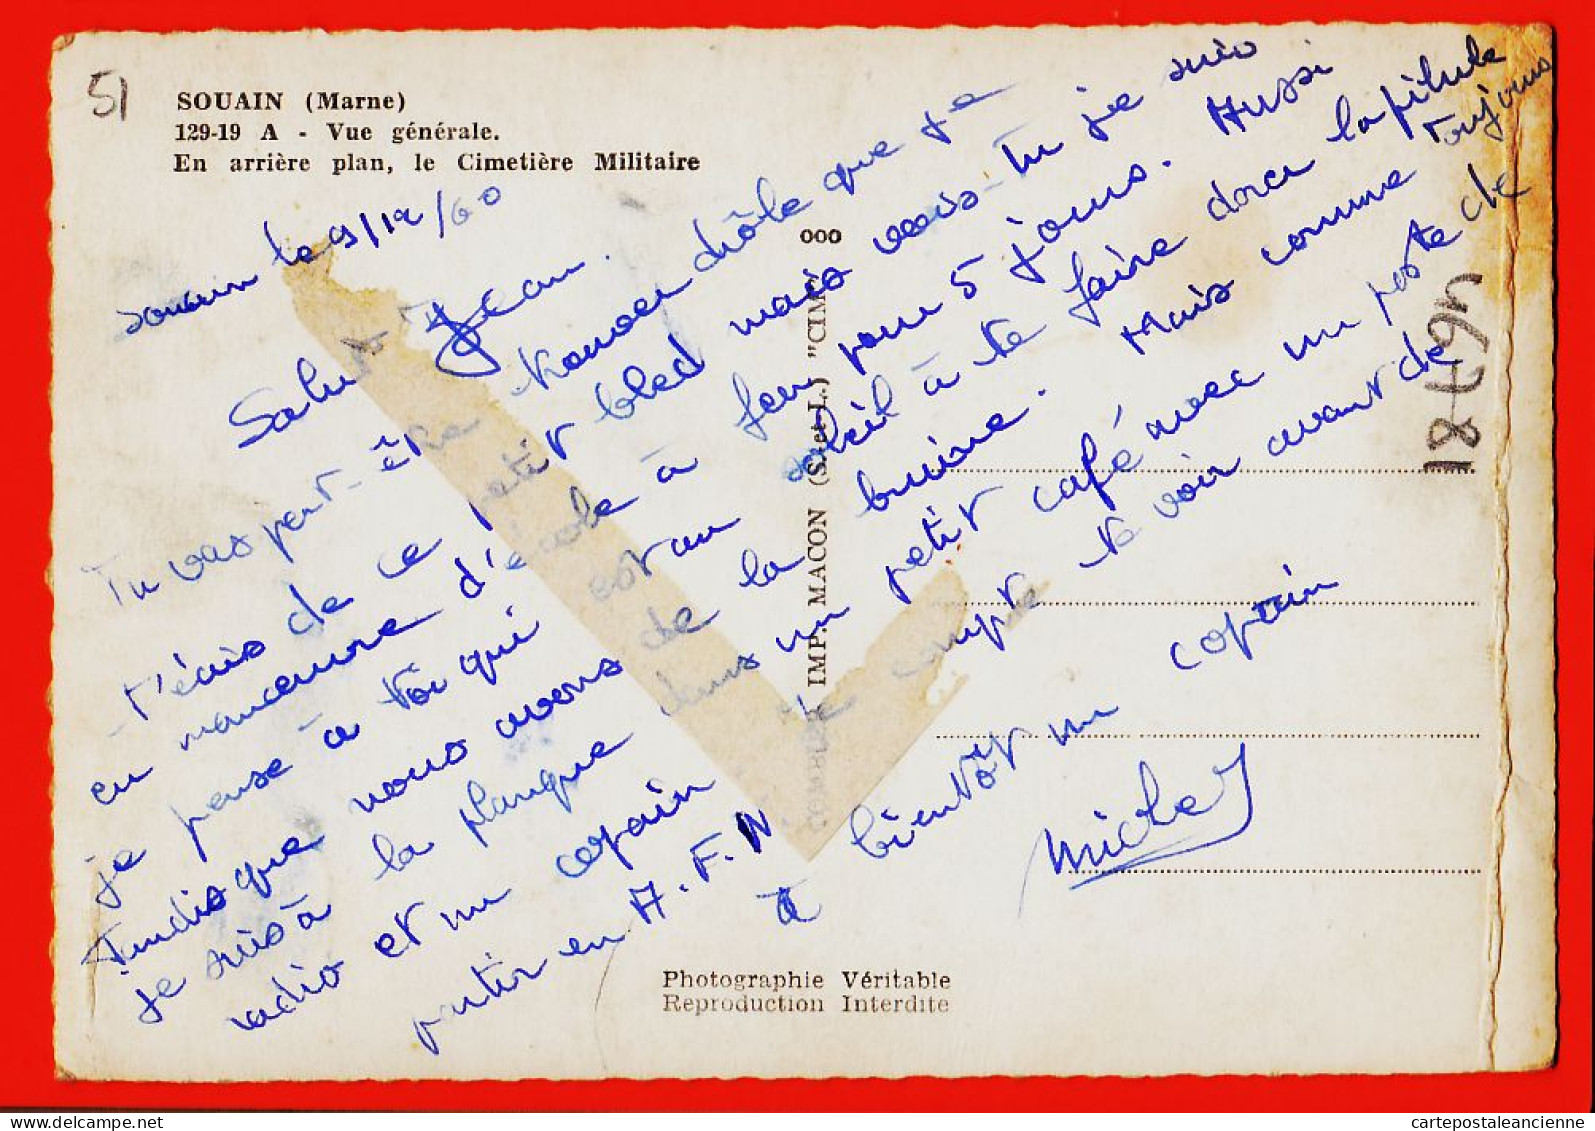 51
SOUAIN (Marne)
129-19 A - Vue générale.
En arrière plan, le Cimetière Militaire
Souain le 9/12/60
Salut Jean.
Tu vas peut-être trouver drôle que je
t'écris de ce petit bled mais vois-tu je suis
en manœuvre d'école à feu pour 5 jours. Aussi
je pense à toi qui est au soleil à te faire dorer la pilule
Tandis que nous avons de la bruine. Mais comme toujours
je suis à la planque dans un petit café avec un poste de
radio et un copain je compte te voir avant de
partir en A.F.N.
à bientôt un copain
Michel
ooo
COMBIER IMP. MACON (S.-et-L.) "CIM"
46781
Photographie Véritable
Reproduction Interdite
cartepostaleancienne